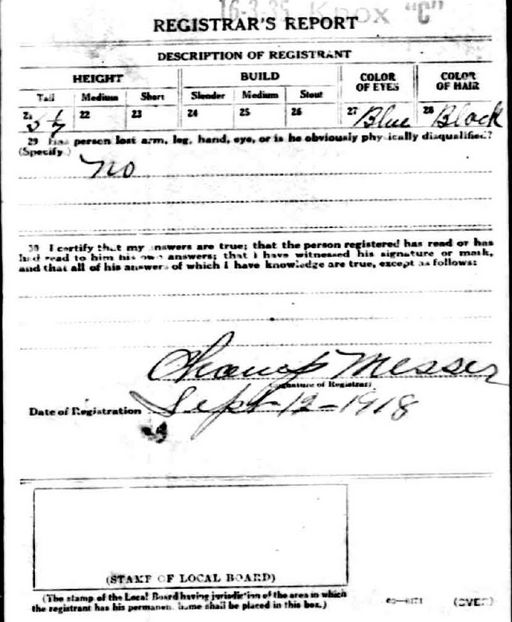 16-3-35 Knox "C"
REGISTRAR'S REPORT
DESCRIPTION OF REGISTRANT
HEIGHT BUILD COLOR OF EYES COLOR OF HAIR
Tall Medium Short Slender Medium Stout
21 22 23 24 25 26 27 Blue 28 Black
29 Has person lost arm, leg, hand, eye, or is he obviously physically disqualified?
(Specify.)
No
30 I certify that my answers are true; that the person registered has read or has
had read to him his own answers; that I have witnessed his signature or mark,
and that all of his answers of which I have knowledge are true, except as follows:
Champ Messer
(Signature of Registrar)
Date of Registration Sept-12-1918
(STAMP OF LOCAL BOARD)
(The stamp of the Local Board having jurisdiction of the area in which
the registrant has his permanent home shall be placed in this box.)
(OVER)